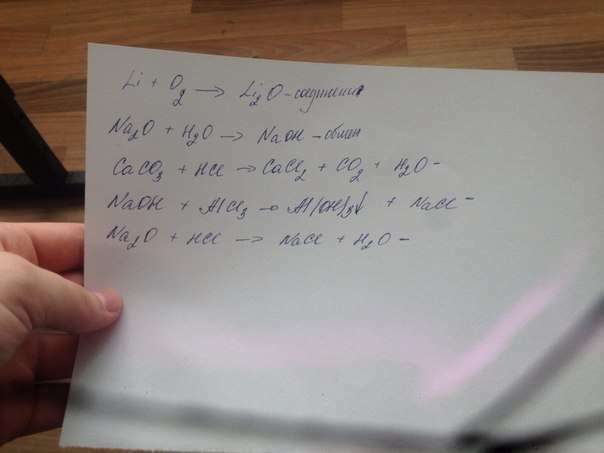 Li + O₂ → Li₂O - соединения
Na₂O + H₂O → NaOH - обмен
CaCO₃ + HCl → CaCl₂ + CO₂ + H₂O -
NaOH + AlCl₃ → Al(OH)₃↓ + NaCl -
Na₂O + HCl → NaCl + H₂O -